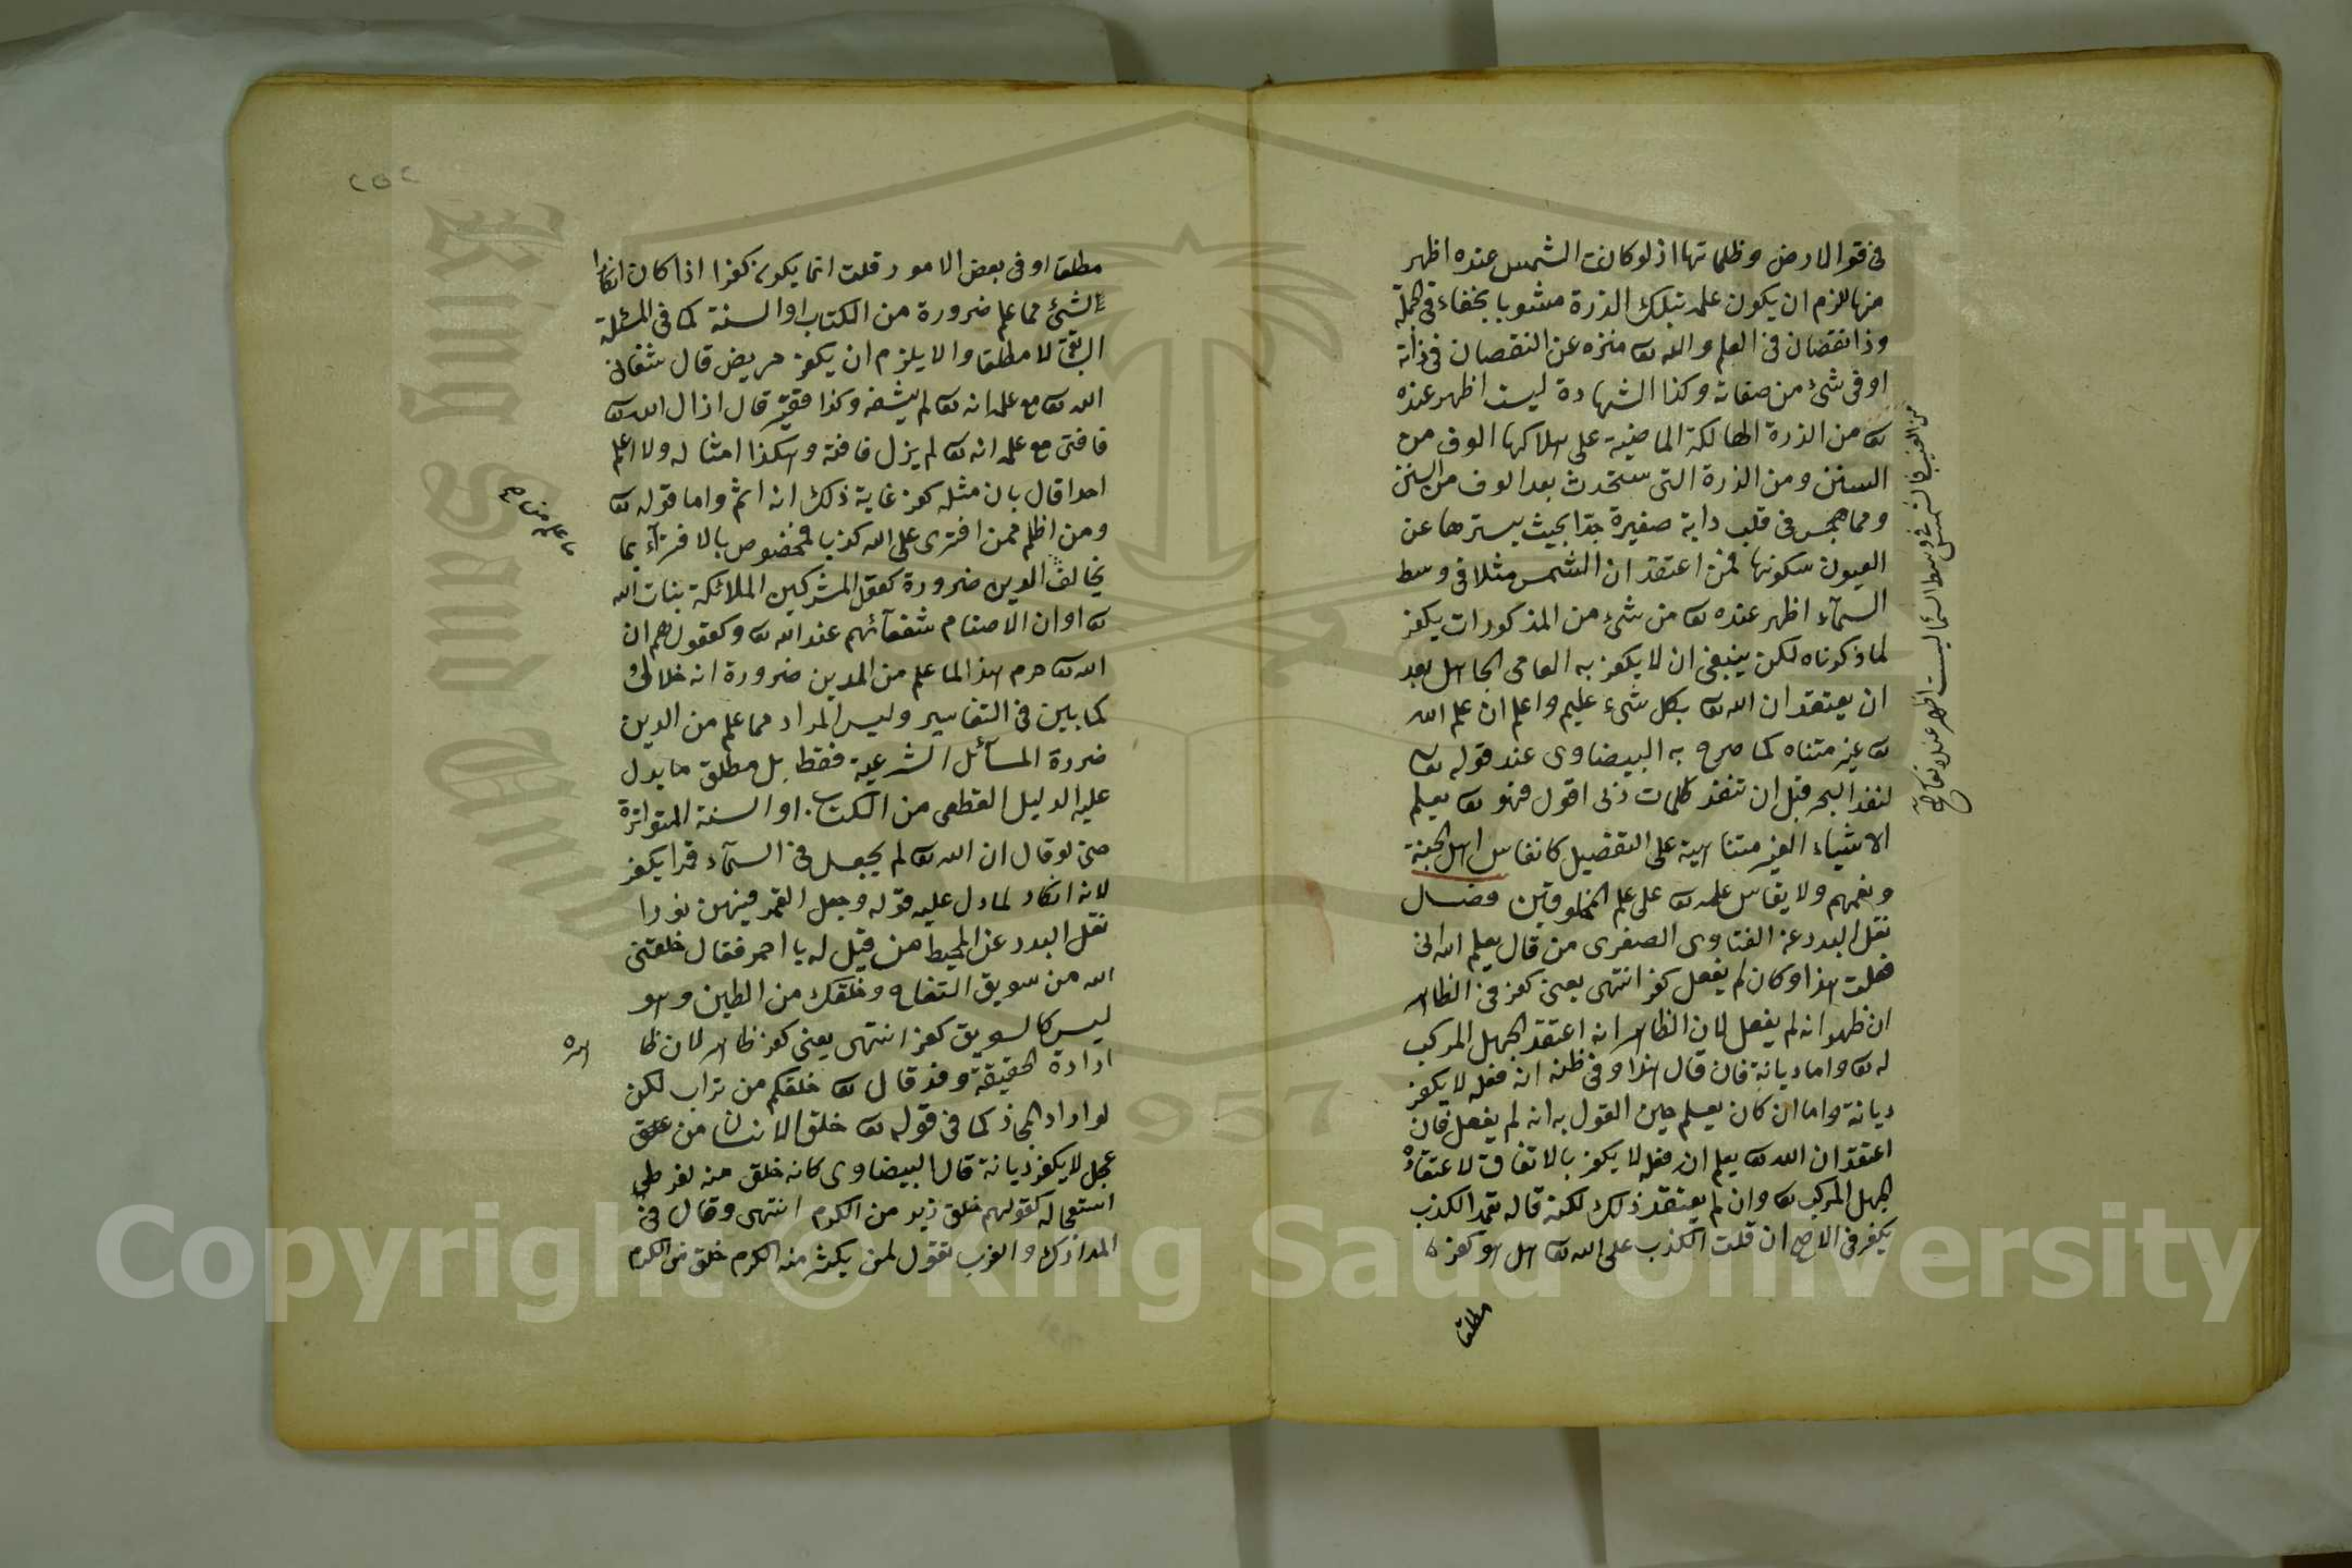 في قعر الارض وظلماتها اذ لو كانت الشمس عنده اظهر
منها للزم ان يكون علمه بتلك الذرة مشوبا بخفاء في الجملة
وذا نقصان في العلم والله تع منزه عن النقصان في ذاته
او في شئ من صفاته وكذا الشهادة ليست اظهر عنده
تع من الذرة الهالكة الماضية على هلاكها الوف من
السنين ومن الذرة التى ستحدث بعد الوف من السنين
ومما هجس في قلب دابة صغيرة جدا بحيث يسترها عن
العيون سكونها فمن اعتقد ان الشمس مثلا في وسط
السمآء اظهر عنده تع من شئ من المذكورات يكفر
لما ذكرناه لكن ينبغى ان لا يكفر به العامى الجاهل بعد
ان يعتقد ان الله تع بكل شئ عليم واعلم ان علم الله
تع غير متناه كما صرح به البيضاوى عند قوله تع
لنفد البحر قبل ان تنفد كلمات ربى اقول فهو تع يعلم
الاشياء الغير متناهية على التفصيل كانفاس اهل الجنة
ونعمهم ولا يقاس علمه تع على علم المخلوقين فصل
نقل البدر عن الفتاوى الصغرى من قال يعلم الله انى
فعلت هذا وكان لم يفعل كفر انتهى يعنى كفر في الظاهر
ان ظهر انه لم يفعل لان الظاهر انه اعتقد الجهل المركب
له تع واما ديانة فان قال هذا وفي ظنه انه فعله لا يكفر
ديانة واما ان كان يعلم حين القول به انه لم يفعل فان
اعتقد ان الله تع يعلم ان فعله لا يكفر بالاتفاق لاعتقاده
الجهل المركب تع وان لم يعتقد ذلك لكنه قاله تعمد الكذب
يكفر في الاصح ان قلت الكذب على الله تع هل هو كفر
مطلقا
مطلقا او في بعض الامور قلت انما يكون كفرا اذا كان انكارا
لشئ مما علم ضرورة من الكتاب او السنة كما في المسئلة
السابقة لا مطلقا والا يلزم ان يكفر مريض قال شفانى
الله تع مع علمه انه تع لم يشفه وكذا فقير قال ازال الله تع
فاقتى مع علمه انه تع لم يزل فاقته وهكذا امثاله ولا اعلم
احدا قال بان مثله كفر غاية ذلك انه اثم واما قوله تع
ومن اظلم ممن افترى على الله كذبا فمخصوص بالافترآء بما
يخالف الدين ضرورة كقول المشركين الملائكة بنات الله
تع او ان الاصنام شفعآئهم عند الله تع وكقولهم ان
الله تع حرم هذا لما علم من الدين ضرورة انه حلال
كما بين في التفاسير وليس المراد مما علم من الدين
ضررة المسآئل الشرعية فقط بل مطلق ما يدل
عليه الدليل القطعى من الكتاب او السنة المتواترة
حتى لو قال ان الله تع لم يجعل في السمآء قمرا يكفر
لانه انكار لما دل عليه قوله وجعل القمر فيهن نورا
نقل البدر عن المحيط من قيل له يا احمر فقال خلقنى
الله من سويق التفاح وخلقك من الطين وهو
ليس كالسويق كفر انتهى يعنى كفر ظاهر لان ظا
هره
ارادة الحقيقة وقد قال تع خلقكم من تراب لكن
لو اراد المجاز كما في قوله تع خلق الانسان من
عجل لا يكفر ديانة قال البيضاوى كانه خلق منه لفرط
استعجاله كقولهم خلق زيد من الكرم انتهى وقال في
المدارك والعرب تقول لمن يكثر منه الكرم خلق من الكرم